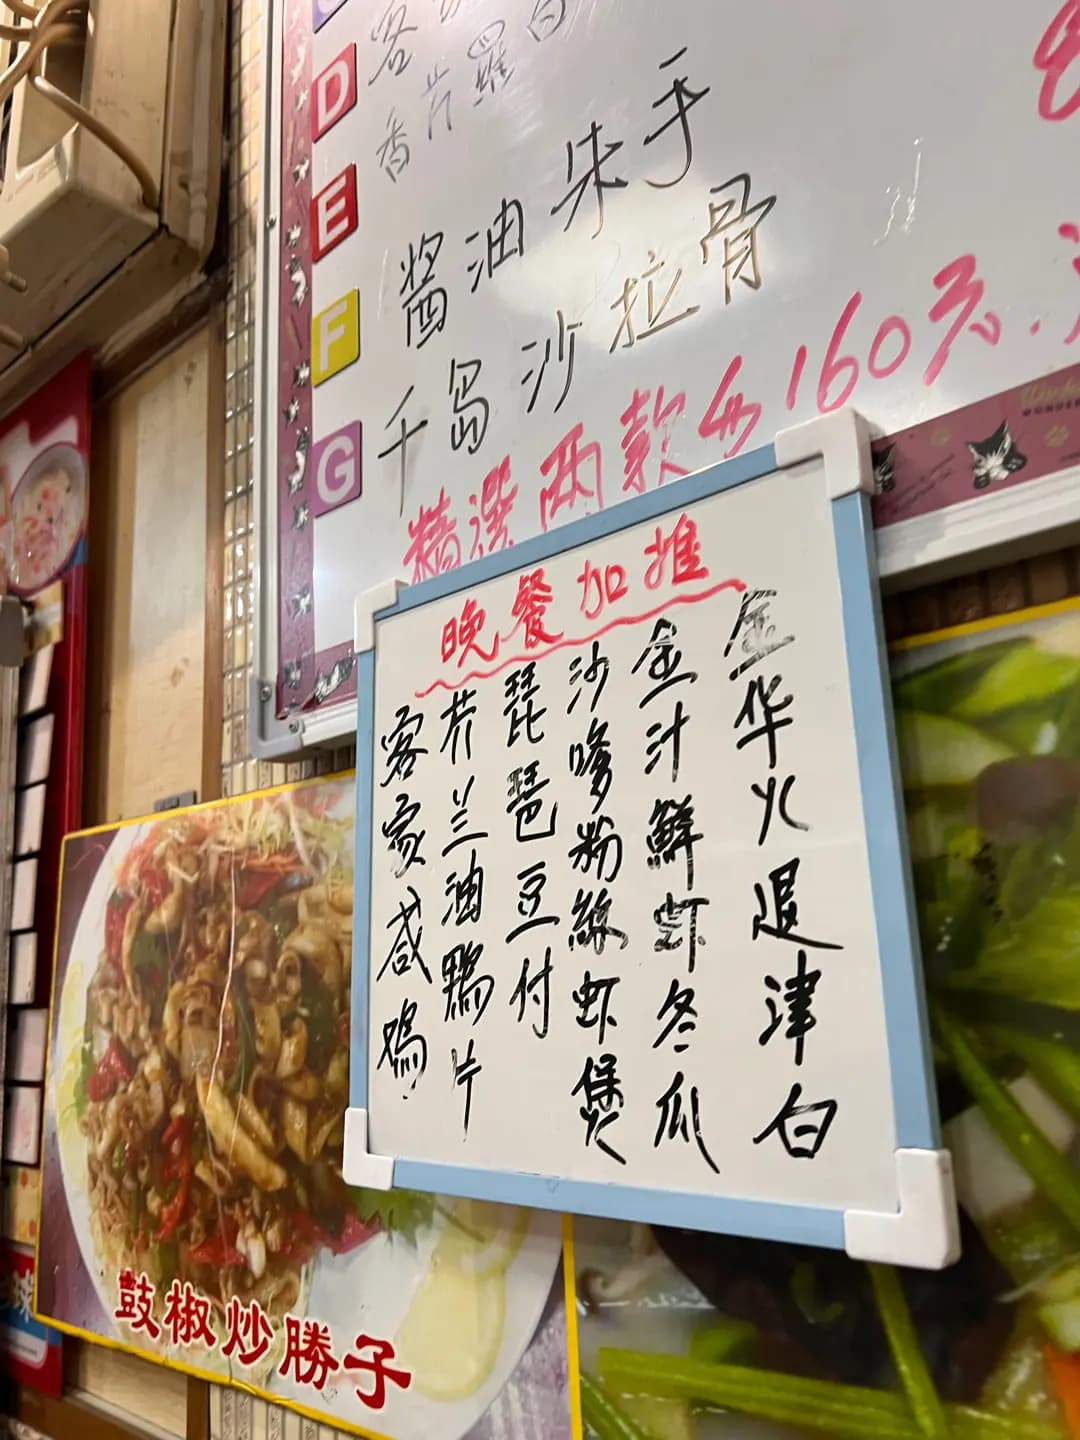 D
客
香芹羅白
E
醬油朱手
F
千島沙拉骨
G
精選兩款
160元
晚餐加推
金华火退津白
金汁鮮虾冬瓜
沙嗲粉絲虾煲
琵琶豆付
芥兰油鴨片
客家咸鸡
鼓椒炒勝子